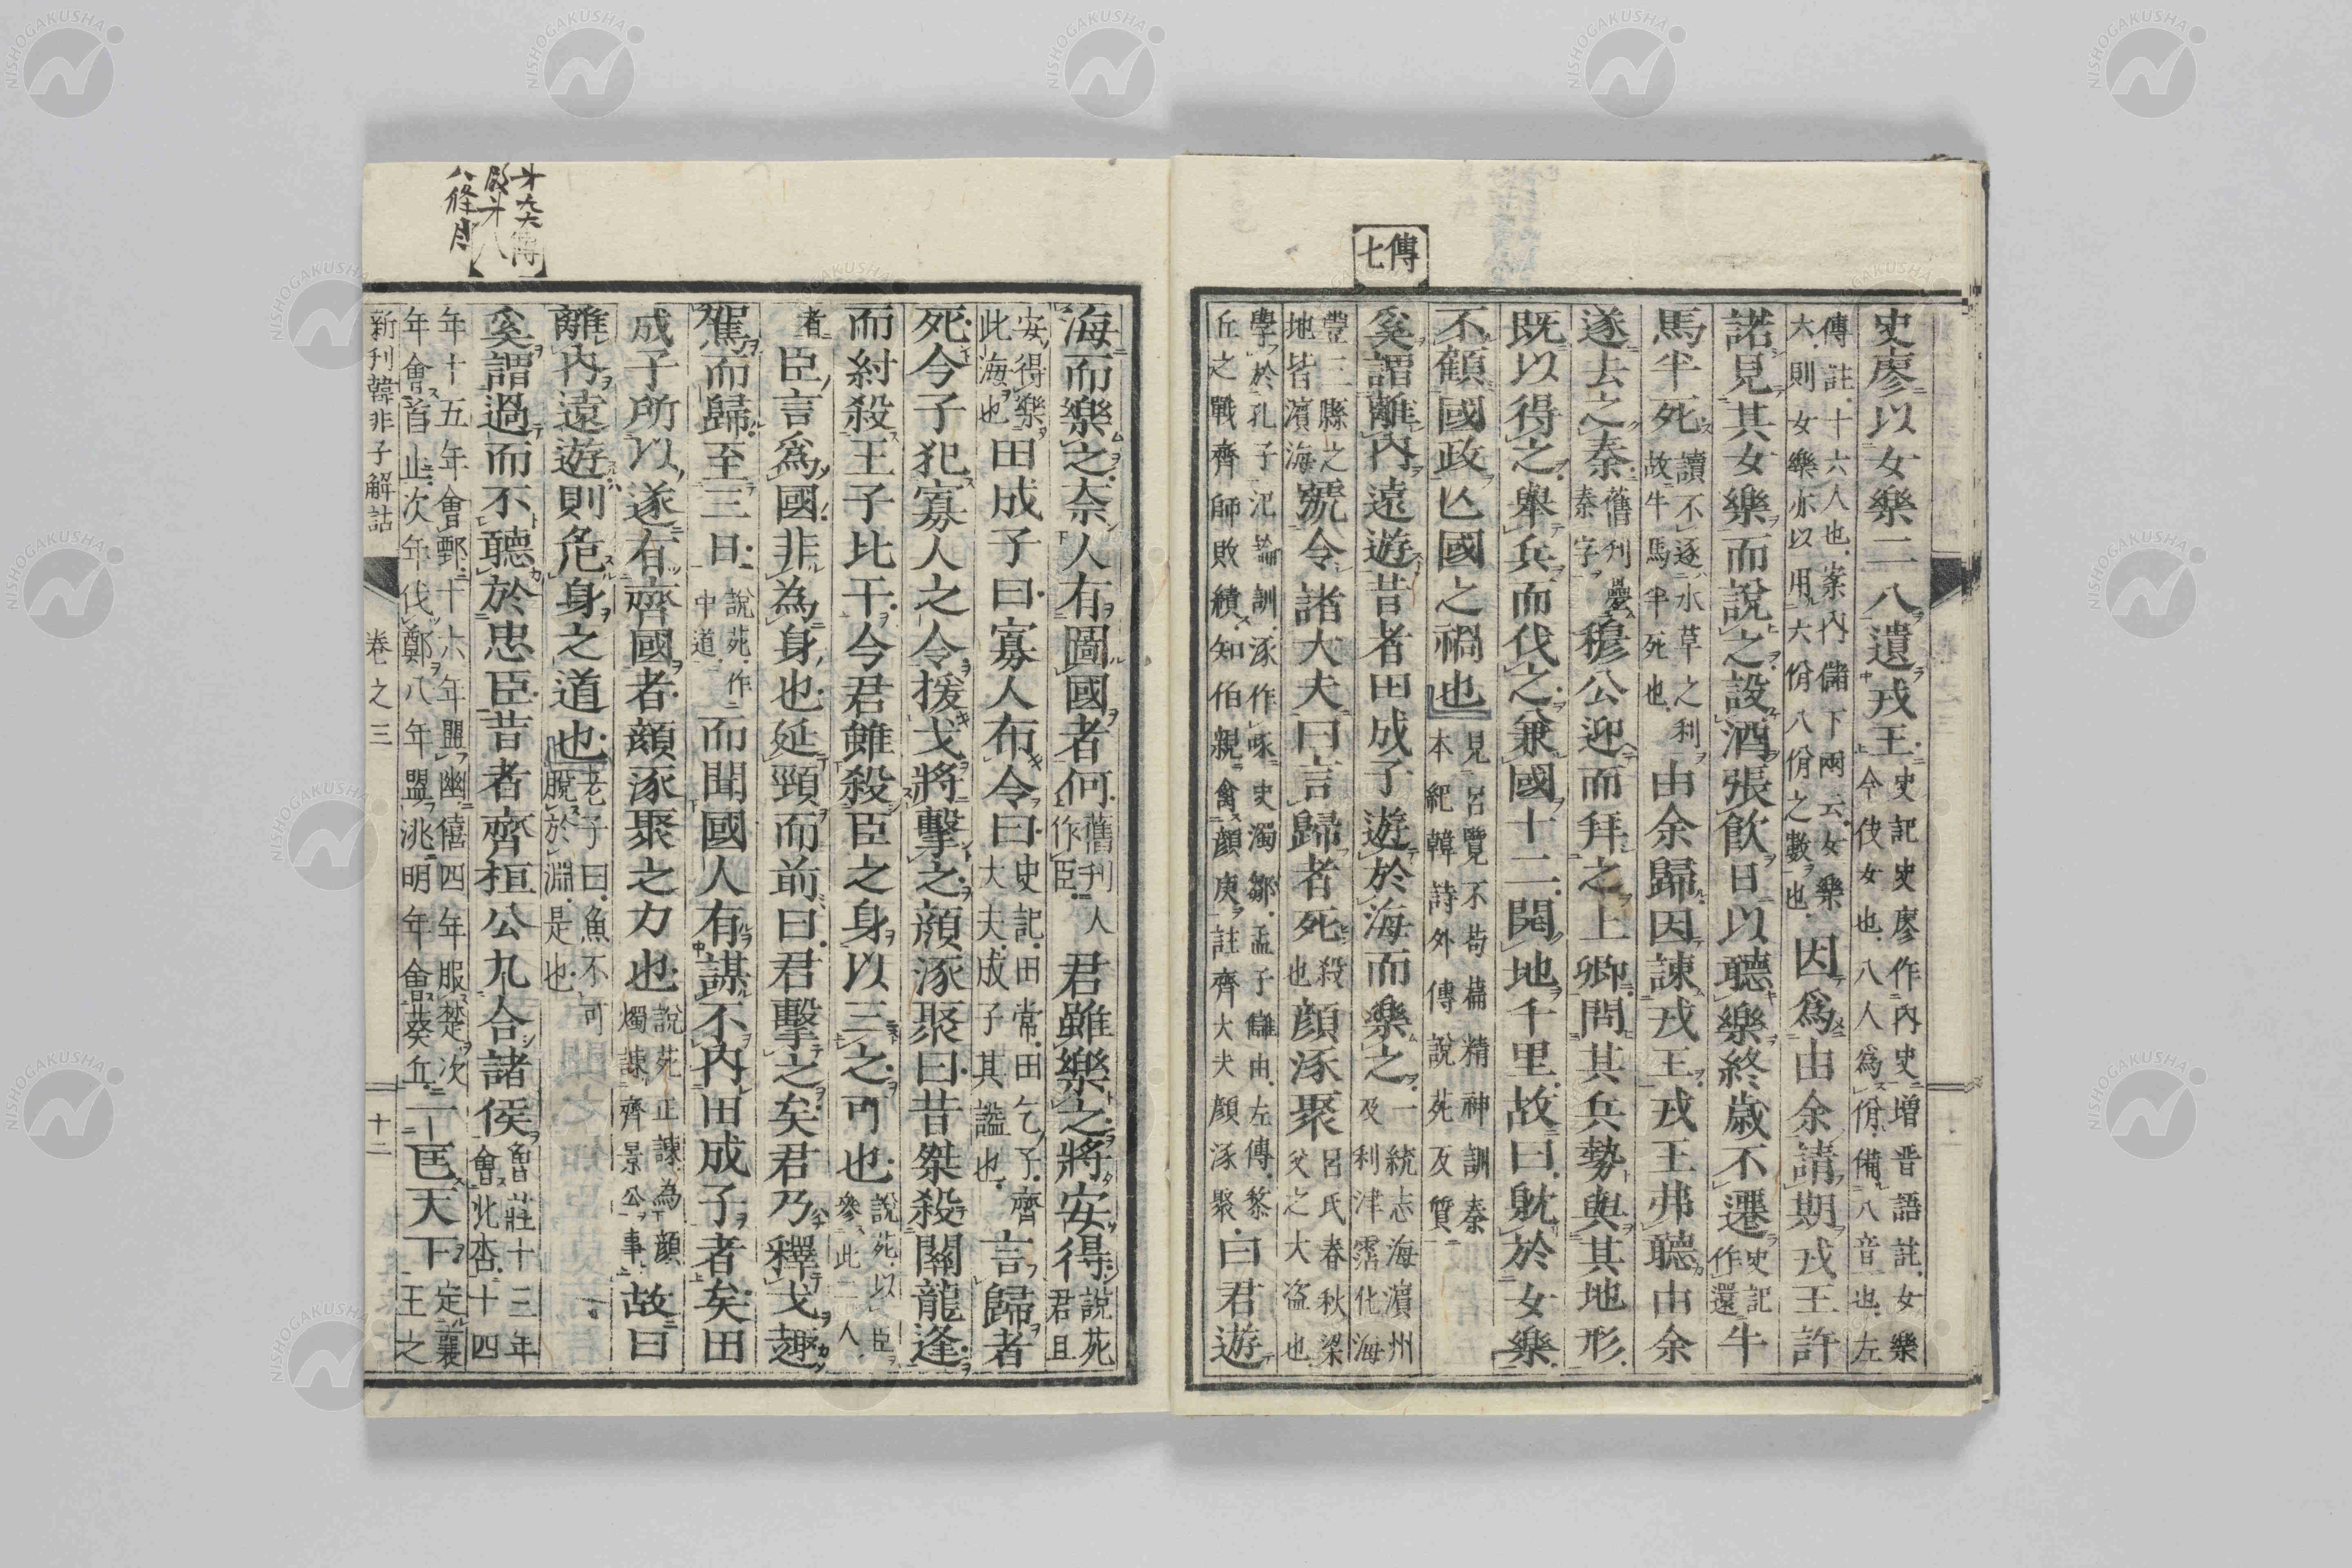 傳七
史廖以女樂二八遺戎王史記史廖作内史増晋語註女樂
今伎女也八人爲佾備八音也左
傳註十六人也案内儲下兩云女樂
六則女樂亦以用六佾八佾之數也因爲由余請期戎王許
諾見其女樂而說之設酒張飲日以聽樂終歳不遷史記作還牛
馬半死讀不逐水草之利故牛馬半死也由余歸因諫戎王戎王弗聽由余
遂去之秦舊刊疊秦字穆公迎而拜之上卿問其兵勢與其地形
既以得之舉兵而伐之兼國十二開地千里故曰耽於女樂
不顧國政亾國之禍也見呂覽不苟篇精神訓秦本紀韓詩外傳說苑反質
奚謂離内遠遊昔者田成子遊於海而樂之一統志海濵州及利津霑化海
豐三縣之地皆濵海號令諸大夫曰言歸者死殺也顔涿聚呂氏春秋梁父之大盗也
學於孔子氾論訓涿作啄史濁鄒孟子讎由左傳黎
丘之戰齊師敗績知伯親禽顔庚註齊大夫顔涿聚曰君遊
海而樂之奈人有圖國者何舊刊人作臣君雖樂之將安得說苑君且
安得樂此海也田成子曰寡人布令曰史記田常田乞子齊大夫成子其謚也言歸者
死今子犯寡人之令援戈將擊之顔涿聚曰昔桀殺關龍逢
而紂殺王子比干今君雖殺臣之身以三之可也說苑以臣參此二人
者臣言爲國非為身也延頸而前曰君擊之矣君乃釋戈趣
駕而歸至三日說苑作中道而聞國人有謀不内田成子者矣田
成子所以遂有齊國者顔涿聚之力也說苑正諫為顔燭諫齊景公事故曰
離内遠遊則危身之道也老子曰魚不可脫於淵是也
奚謂過而不聽於忠臣昔者齊桓公九合諸侯魯莊十三年會北杏十四
年十五年會鄄十六年盟幽僖四年服楚次
年會首止次年伐鄭八年盟洮明年會葵丘一匡天下定襄王之
新刊韓非子解詁 卷之三 十二
NISHOGAKUSHA